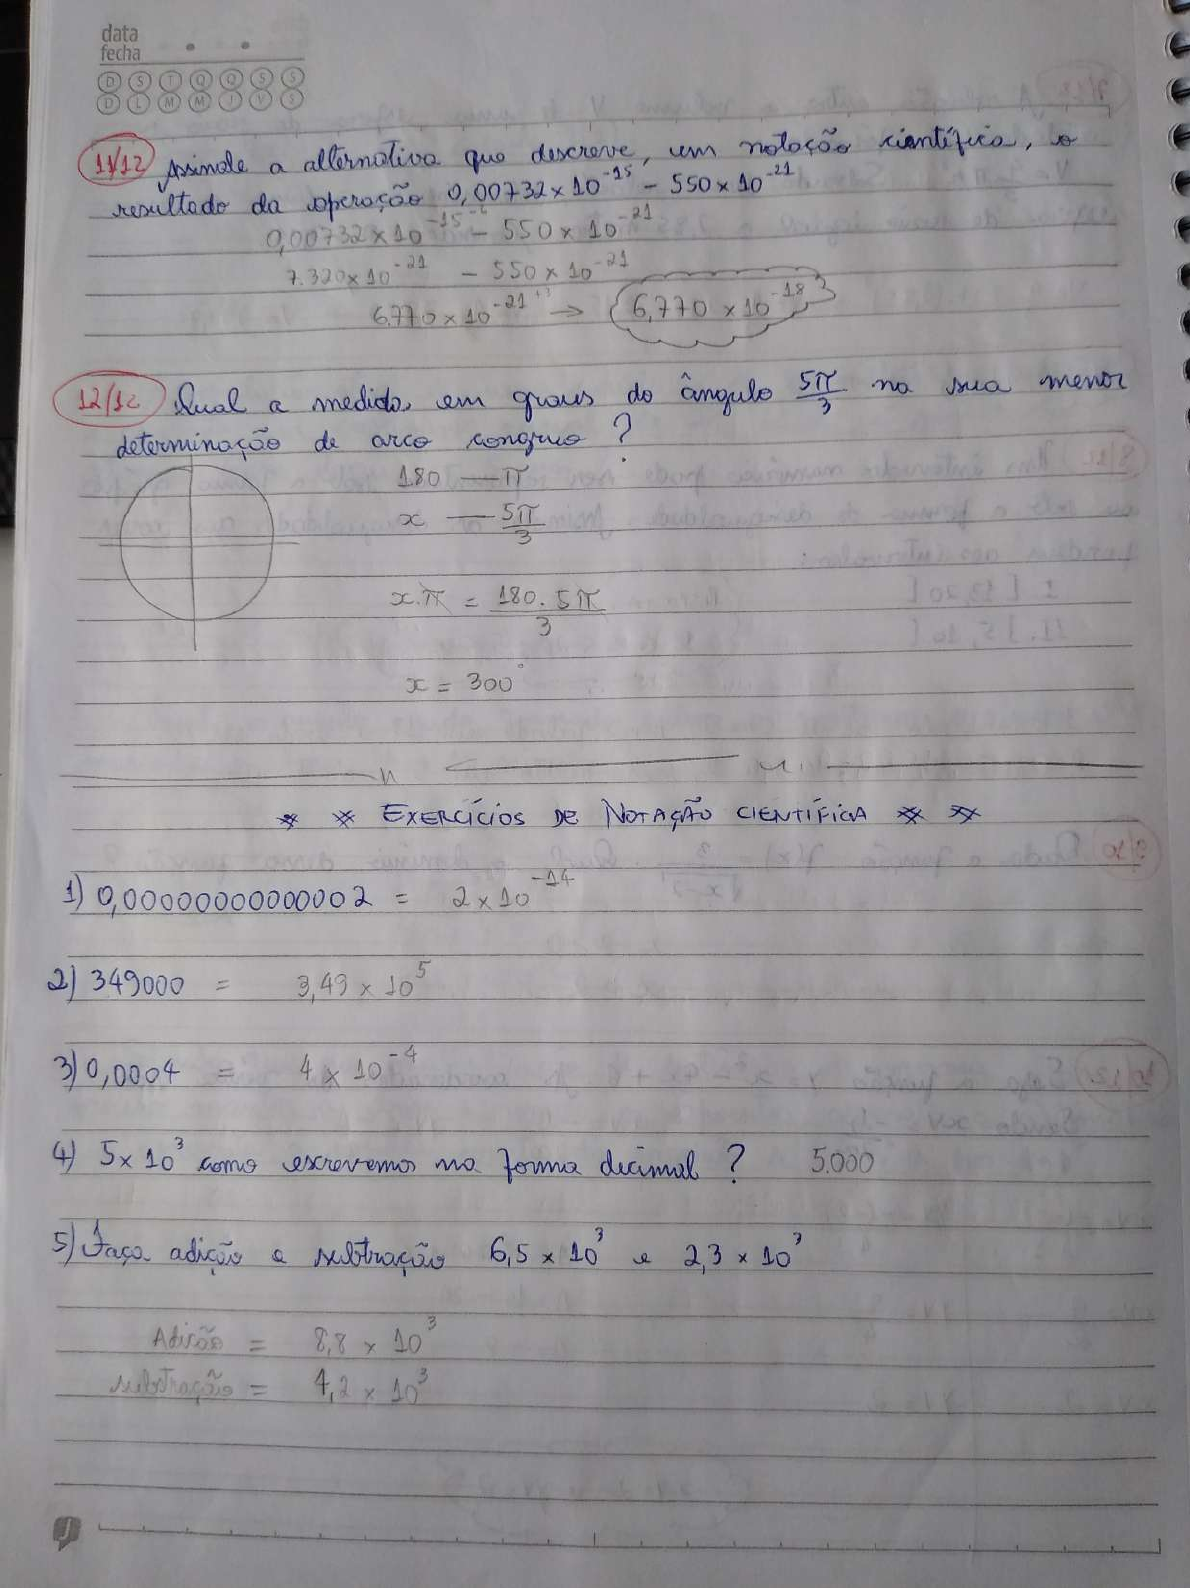 data
fecha
D S T Q Q S S
D L M M J V S
11/12 Assinale a alternativa que descreve, em notação científica, o
resultado da operação 0,00732 x 10^-15 - 550 x 10^-21
0,00732 x 10^-15-6 - 550 x 10^-21
7.320 x 10^-21 - 550 x 10^-21
6.770 x 10^-21+3 → 6,770 x 10^-18
12/12 Qual a medida em graus do ângulo 5π/3 na sua menor
determinação de arco congruo ?
180 — π
x — 5π/3
x.π = 180.5π/3
x = 300°
* * EXERCÍCIOS DE NOTAÇÃO CIENTÍFICA * *
1) 0,00000000000002 = 2 x 10^-14
2) 349000 = 3,49 x 10^5
3) 0,0004 = 4 x 10^-4
4) 5 x 10^3 como escrevemos na forma decimal ? 5.000
5) Faça adição e subtração 6,5 x 10^3 e 2,3 x 10^3
Adição = 8,8 x 10^3
subtração = 4,2 x 10^3